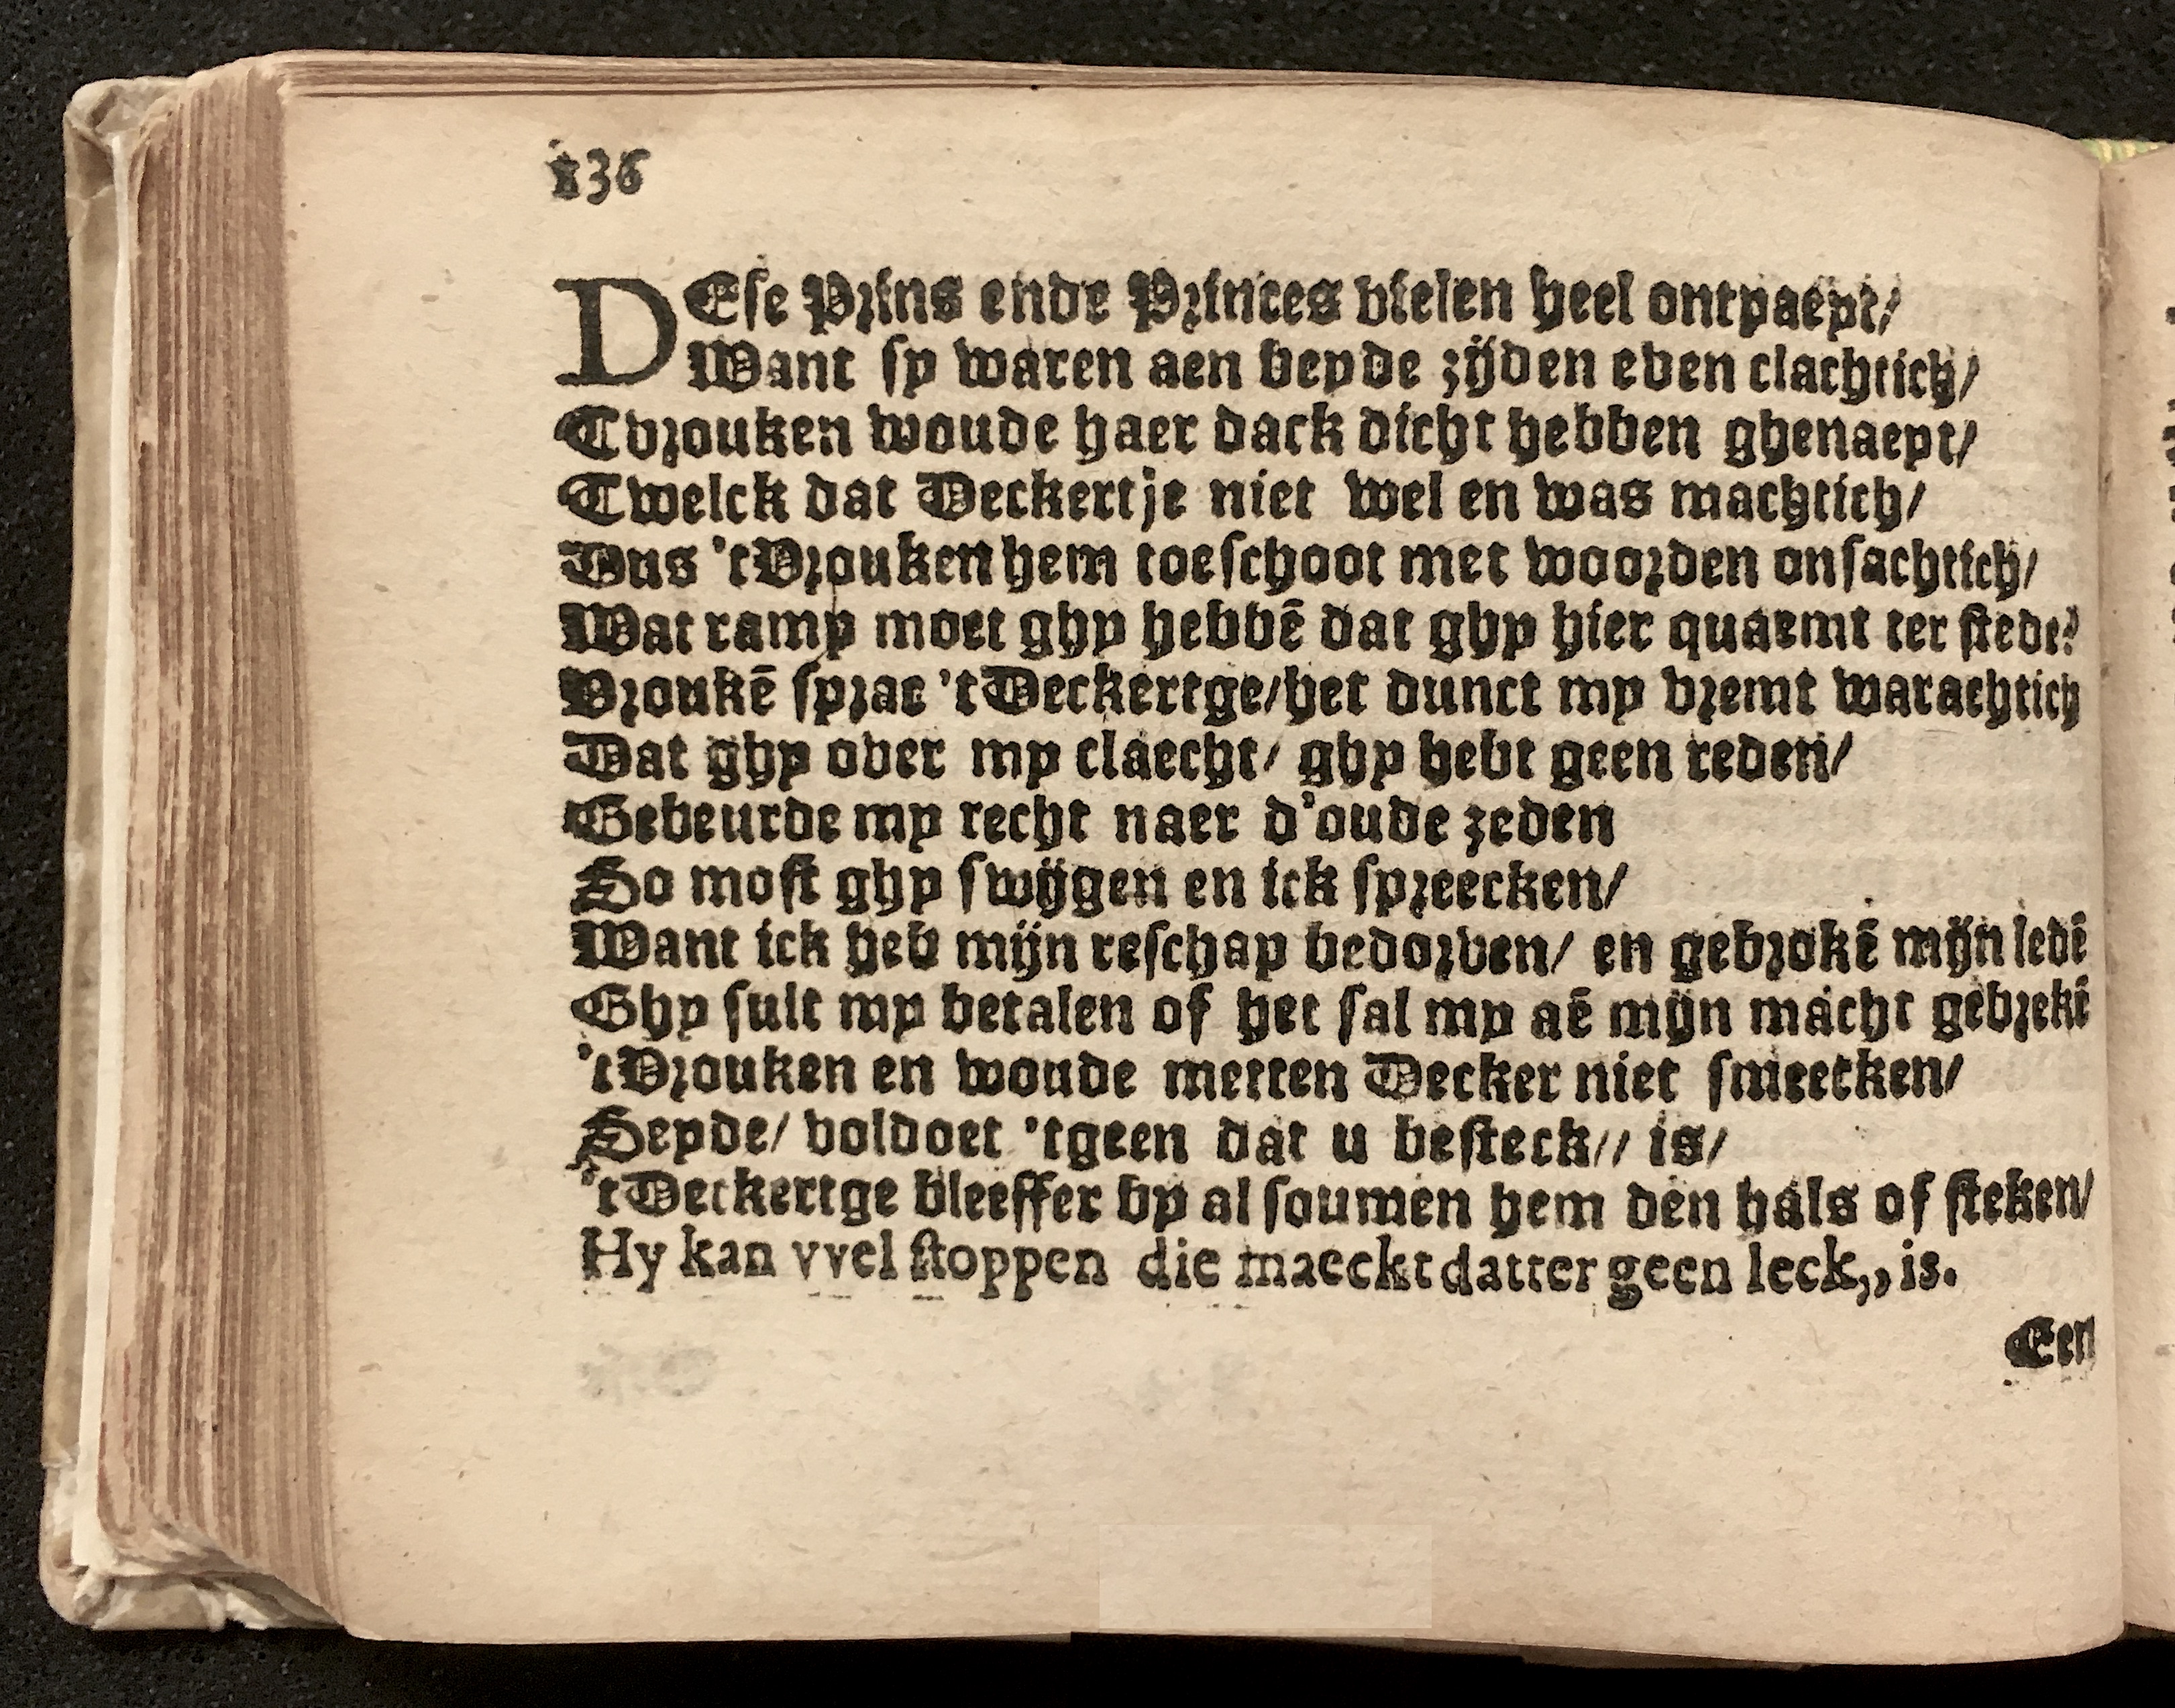 136
DEse Prins ende Princes vielen heel ontpaeyt/
Want sy waren aen beyde zijden even clachtich/
Tvrouken woude haer dack dicht hebben ghenaeyt/
Twelck dat Deckertje niet wel en was machtich/
Dus 't Vrouken hem toeschoot met woorden onsachtich/
Wat ramp moet ghy hebbē dat ghy hier quaemt ter stede?
Vroukē sprac 't Deckertge/het dunct my vremt warachtich
Dat ghy over my claecht/ ghy hebt geen reden/
Gebeurde my recht naer d'oude zeden
So most ghy swijgen en ick spreecken/
Want ick heb mijn reschap bedorven/ en gebrokē mijn ledē
Ghy sult my betalen of het sal my aē mijn macht gebrekē
't Vrouken en woude metten Decker niet smeecken/
Seyde/ voldoet 'tgeen dat u besteck// is/
't Deckertge bleeffer by al soumen hem den hals of steken/
Hy kan vvel stoppen die maeckt datter geen leck,, is.
Een